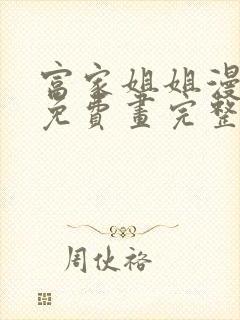 富家姐姐漫
免費畫完整
周伙裕